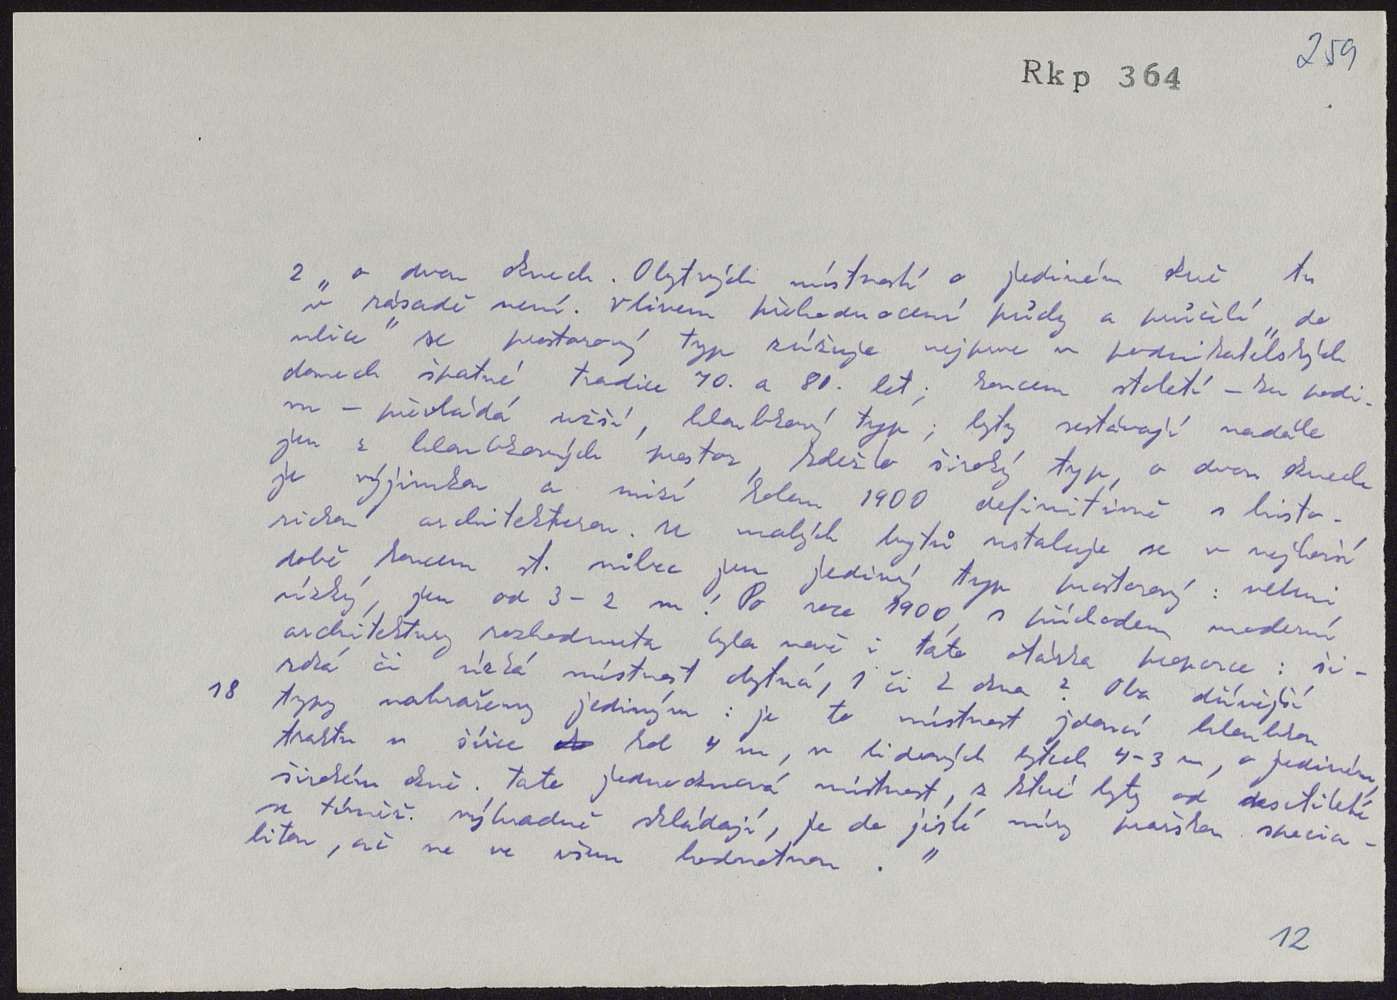 259
Rkp 364
2 „ o dvou oknech. Obytných místností o jediném okně tu
v zásadě není. Vlivem přehodnocení půdy a průčelí „do
ulice" se prostorový typ zužuje nejprve v podnikatelských
domech špatné tradice 70. a 80. let; koncem století – ku podi-
vu – převládá užší, hloubkový typ; byty sestávají nadále
jen z hloubkových prostor, kdežto široký typ, o dvou oknech
je výjimkou a mizí kolem 1900 definitivně s histo-
rickou architekturou. U malých bytů ustaluje se v nejhorší
době koncem st. vůbec jen jediný typ prostorový: velmi
úzký, jen od 3–2 m! Po roce 1900, s příchodem moderní
architektury rozhodnuta byla nově i tato otázka proporce: ši-
roká či úzká místnost obytná, 1 či 2 okna? Oba dřívější
18 typy nahrazeny jediným: je to místnost jdoucí hloubkou
traktu v šířce kol 4 m, v lidových bytech 4–3 m, o jediném,
širokém okně. Tato jednooknová místnost, z které byty od desítiletí
se téměř výhradně skládají, je do jisté míry pražskou specia-
litou, ač ne ve všem hodnotnou."
12